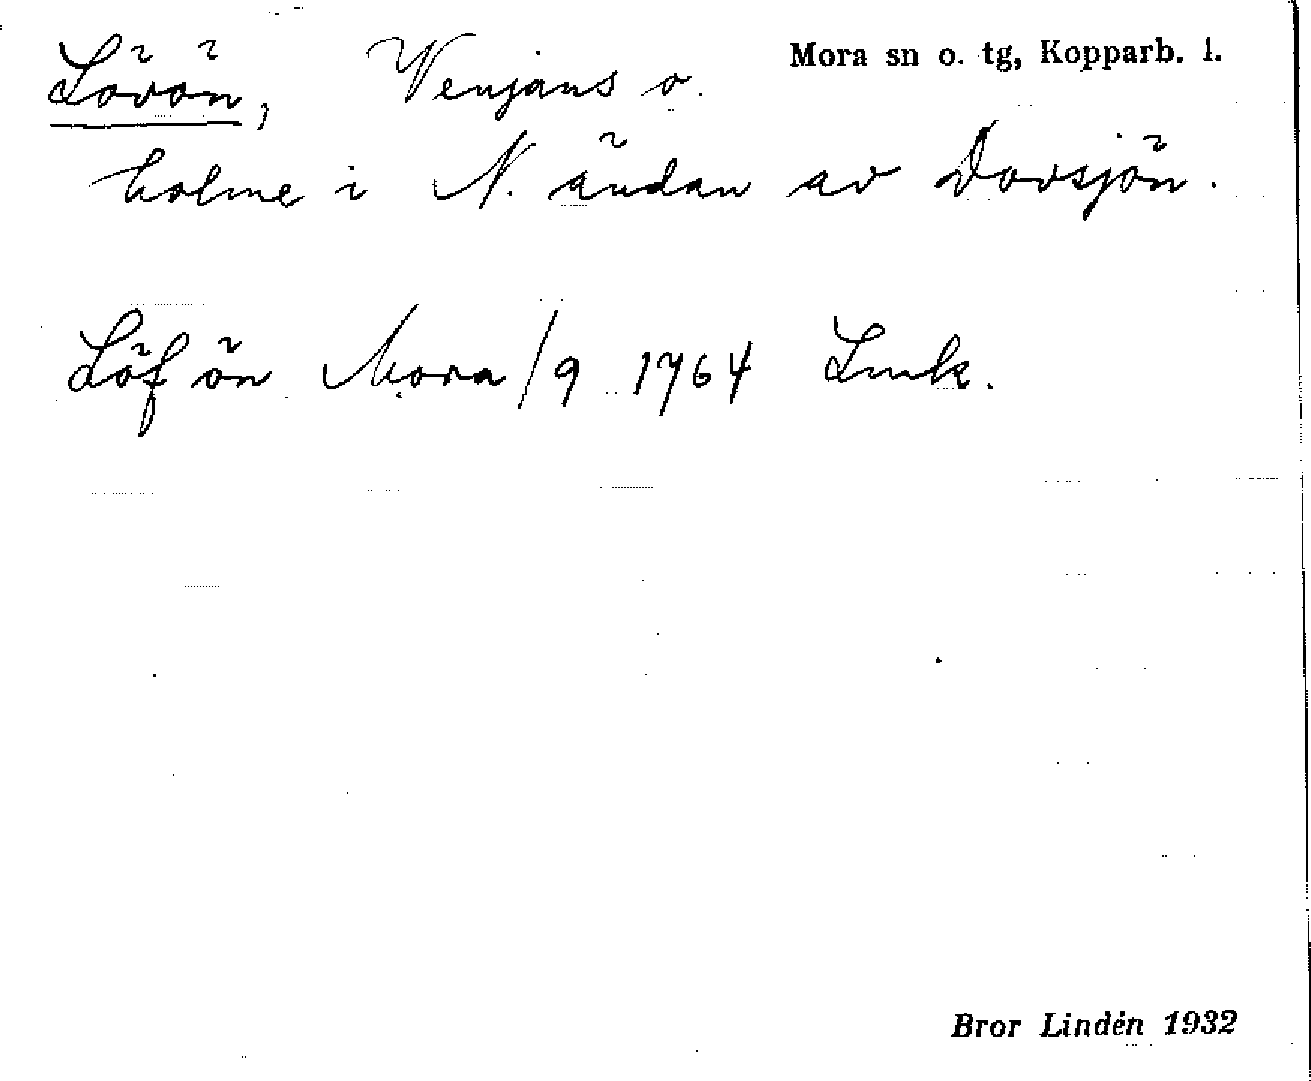 Lövön, Venjans o. Mora sn o. tg, Kopparb. l.
holme i N. ändan av Dovsjön.
Löfön Mora/9 1764 Lmk.
Bror Lindén 1932